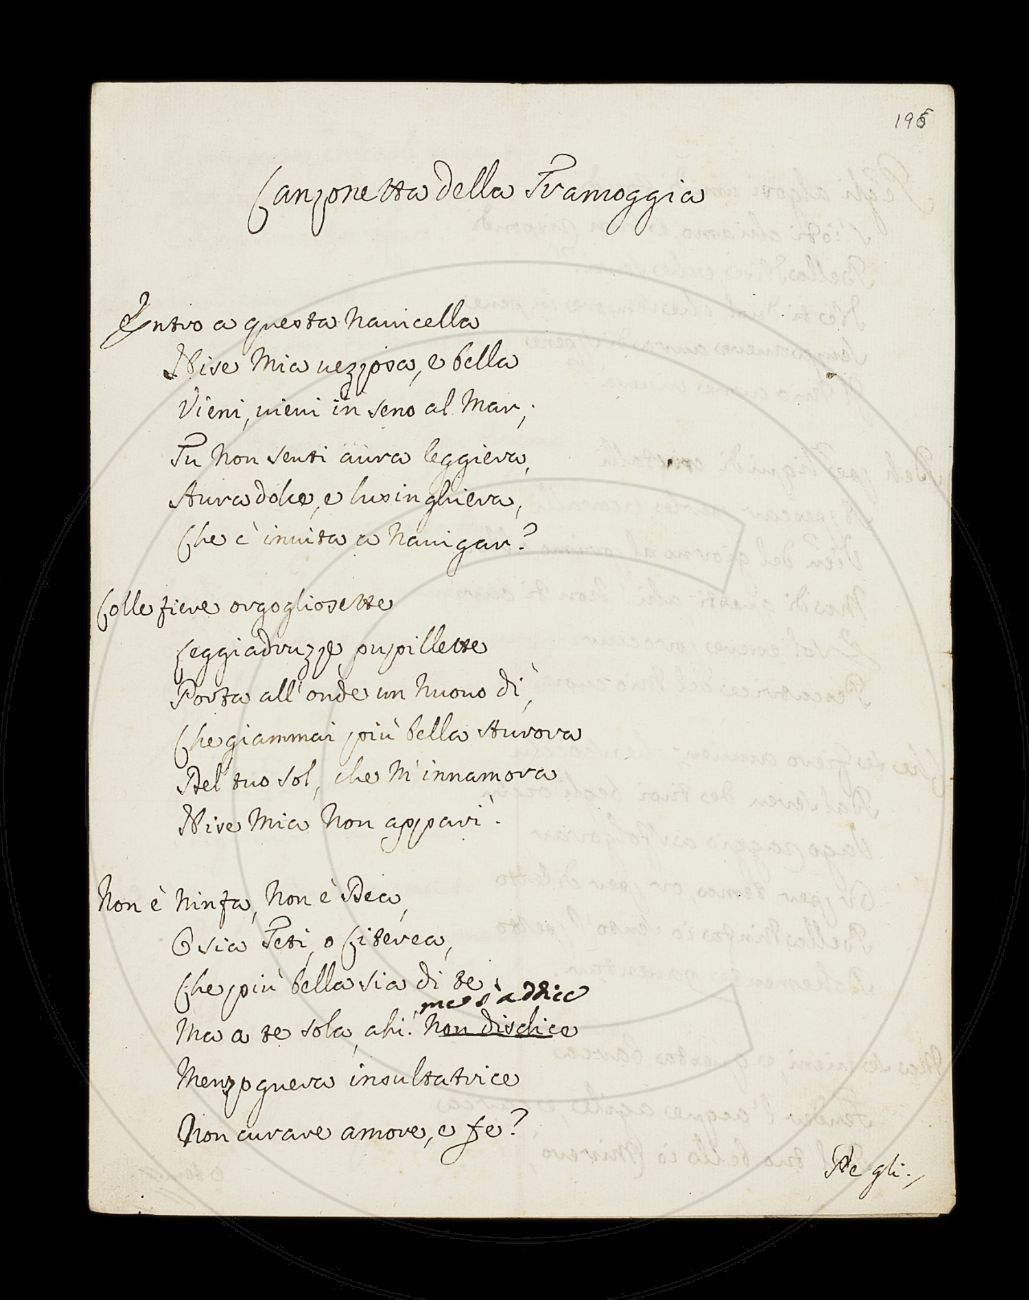 195
Canzonetta della Tramoggia
Entro a questa navicella
Nise mia vezzosa, e bella
Vieni, vieni in seno al mar,
Tu non senti aura leggiera,
Aura dolce, e lusinghiera,
Che c'invita a navigar?
Colle fiere orgogliosette
Leggiadruzze pupillette
Porta all'onde un nuovo dì,
Che giammai più bella Aurora
Del tuo Sol, che m'innamora
Nise mia non apparì.
Non è Ninfa, non è Dea,
O sia Teti, o Citerea,
Che più bella sia di te;
mes s'addice
Ma a te sola, ahi! non disdice
Menzognera insultatrice
Non curare amore, e fe?
Pegli